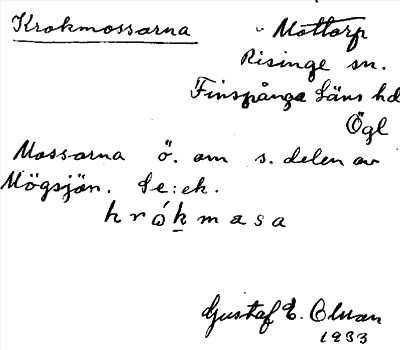 Krokmossarna
Mottorp
Risinge sn.
Finspånga läns hd
Ögl
Mossarna ö. om s. delen av
Mögsjön. Se: ek.
hrókmasa
Gustaf E. Olsson
1933